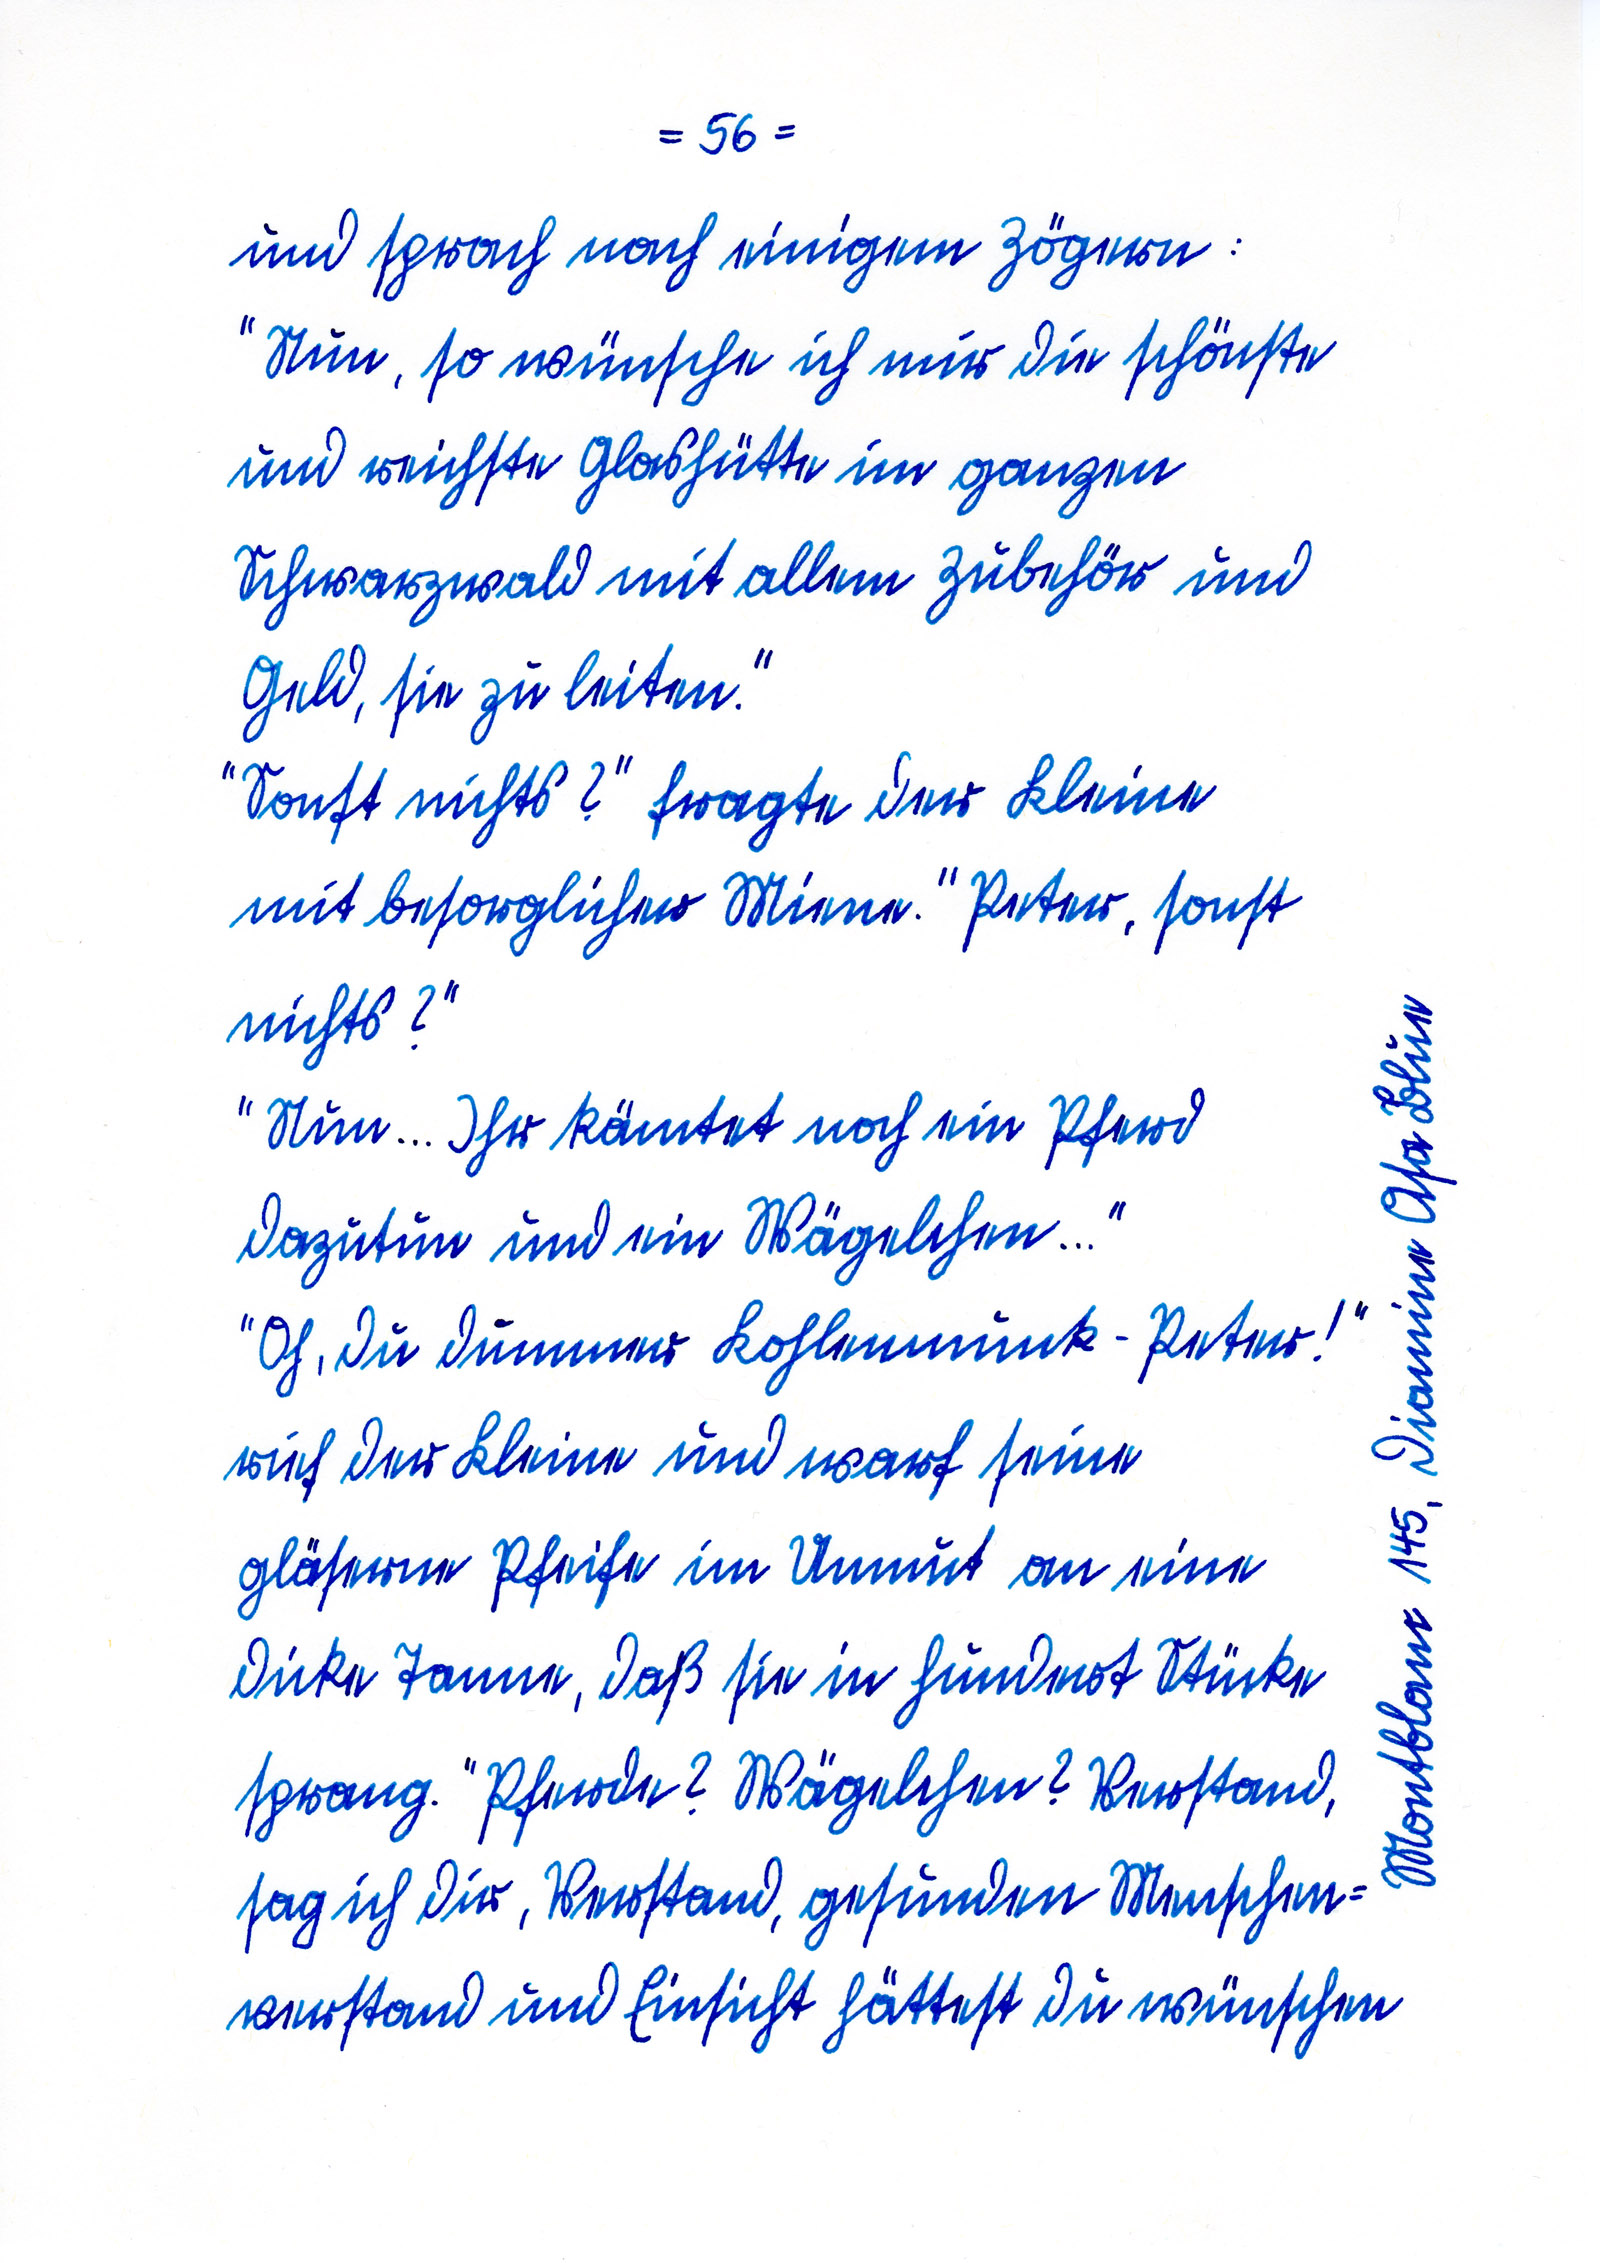 = 56 =
und sprach nach einigem Zögern:
"Nun, so wünsche ich mir die schönste
und reichste Glashütte im ganzen
Schwarzwald mit allem Zubehör und
Geld, sie zu leiten."
"Sonst nichts?" fragte der Kleine
mit besorglicher Miene. "Peter, sonst
nichts?"
"Nun... Ihr könntet noch ein Pferd
dazutun und ein Wägelchen..."
"Oh, du dummer Kohlenmunk-Peter!"
rief der Kleine und warf seine
gläserne Pfeife im Unmut an eine
dicke Tanne, daß sie in hundert Stücke
sprang. "Pferde? Wägelchen? Verstand,
sag ich dir, Verstand, gesunden Menschen=
verstand und Einsicht hättest du wünschen
Montblanc 145, Diamine Asa Blue